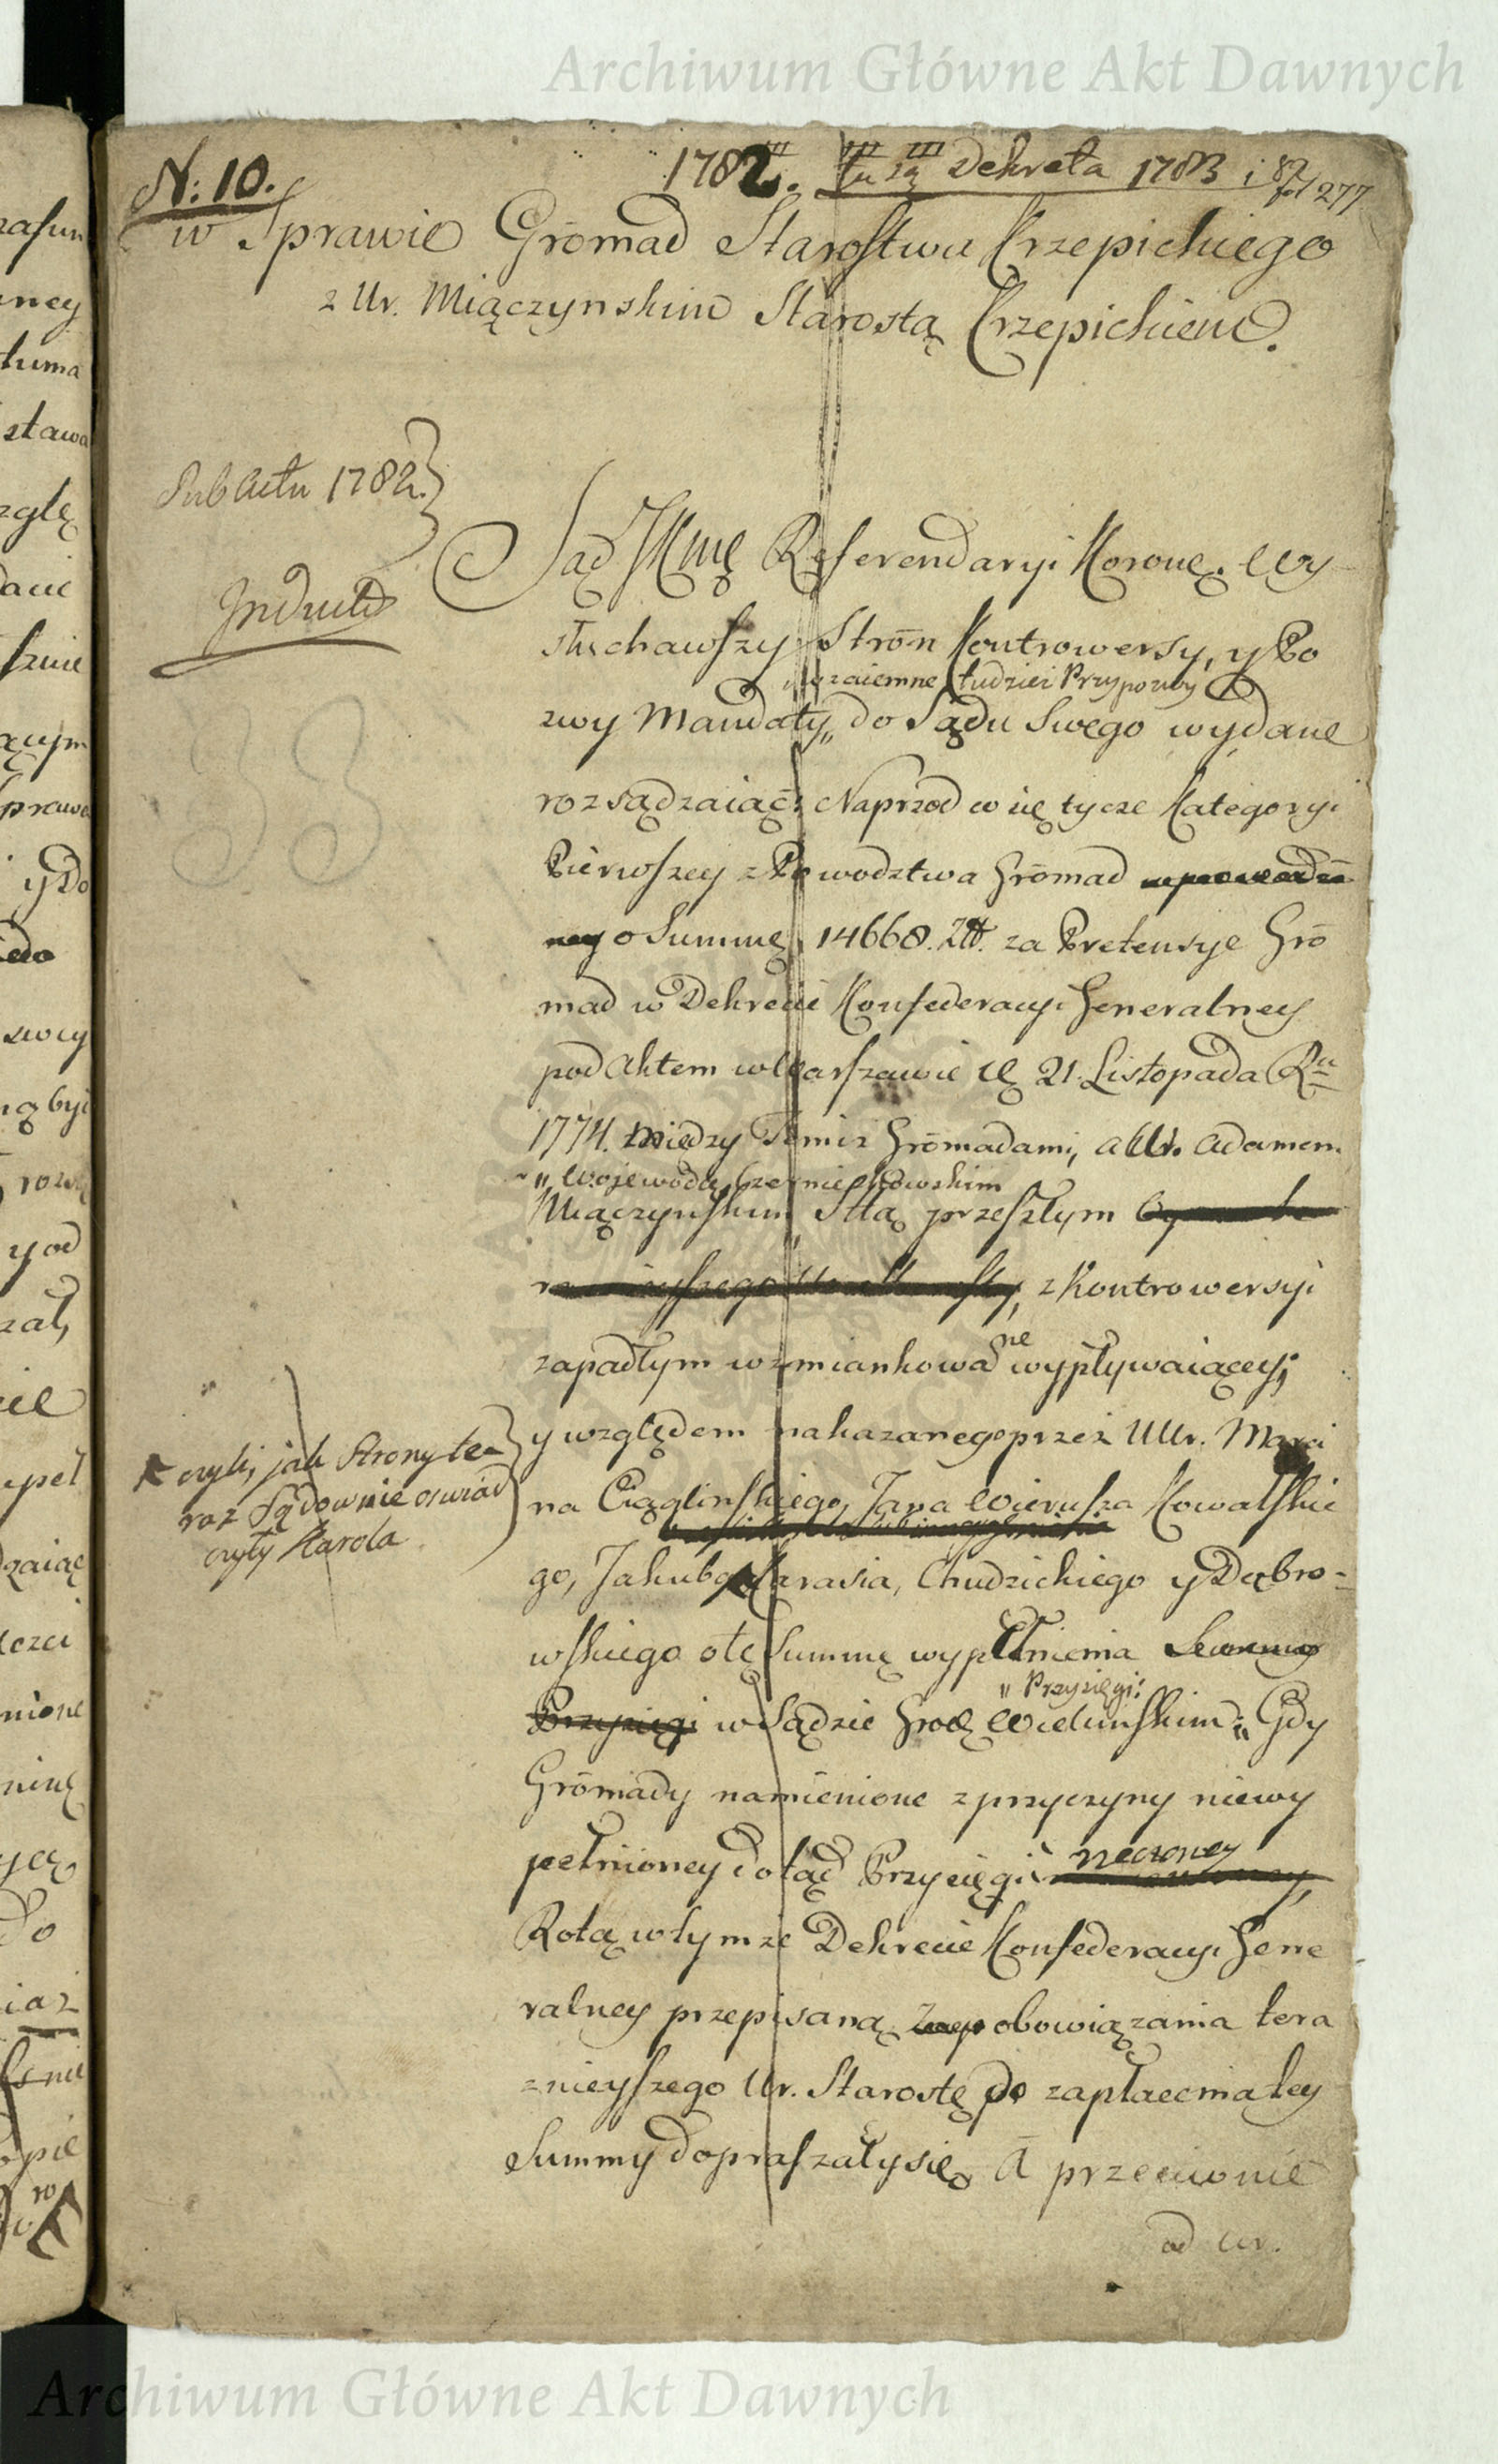 Archiwum Główne Akt Dawnych
N: 10.
1782. tu są Dekreta 1783 i 82
277
w Sprawie Gromad Starostwa Krzepickiego
z Ur. Miączynskim Starostą Krzepickiem.
Sub Actu 1782.
Inducta
Sąd JKMę Referendaryi Koronę. Wy
słuchawszy Strón Kontrowersy, y Po
wzaiemne, tudzież Przypozwy
zwy Mandaty,, do Sądu Swego wydane
rozsądzaiąc: Naprzod co się tycze Kategoryi
Pierwszey z Powodztwa Gromad wprowadzo
ney o Summę 14668. Zł. za Pretensye Gro
mad w Dekrecie Konfederacyi Generalney
pod Aktem w Warszawie d. 21. Listopada Ru
1774. między Temiż Gromadami, a Ur. Adamem
,, Wojewodą Czerniechowskim
Miączynskim Sttą przeszłym
z Kontrowersyi
zapadłym wzmiankowane wypływaiącey;
y względem nakazanego przez UUr. Marci
na Ciąglinskiego, Jana Wierusza Kowalskie
go, Jakuba Karasia, Chudzickiego y Dąbro-
x czyli, jak Strony te-
raz Sądownie oswiad
czyły Karola
wskiego o tę Summę wypełnienia
,, Przysięgi:
Przysięgi w Sądzie Grodz Wielunskim: ,, Gdy
Gromady namienione z przyczyny niewy
pełnioney dotąd Przysięgi rzeczoney
Rotą w tymże Dekrecie Konfederacyi Gene
ralney przepisaną obowiązania tera
znieyszego Ur. Starostę do zapłacenia tey
Summy dopraszały się. A przeciwnie
od Ur.
Archiwum Główne Akt Dawnych